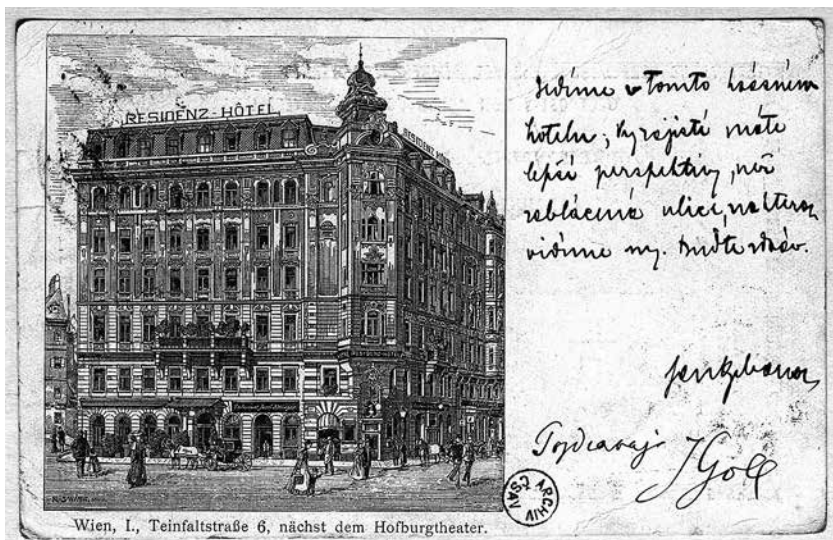 RESIDENZ-HÔTEL
RESIDENZ HÔTEL
Sedíme v tomto krásném
hotelu; Vy zajisté máte
lepší perspektivy, než
zablácená ulice, na kterou
vidíme my. Buďte zdráv.
Pozdravuje JGoll
ARCHIV ČSAV
Wien, I., Teinfaltstraße 6, nächst dem Hofburgtheater.